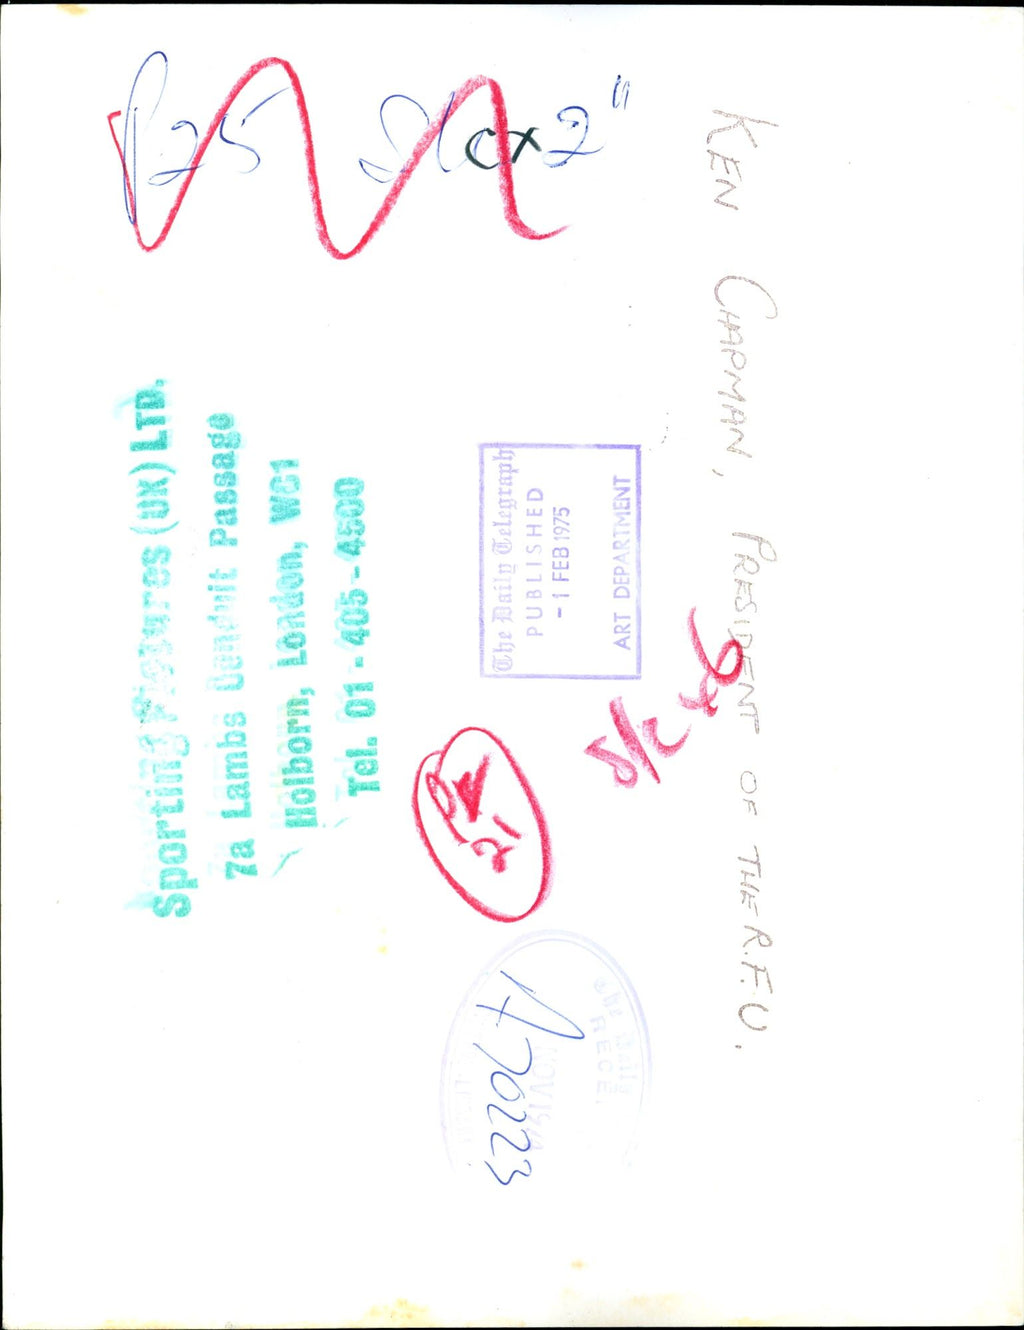 P25 S/cx2"
KEN CHAPMAN, PRESIDENT OF THE R.F.U.
Sporting Pictures (UK) LTD.
7a Lambs Conduit Passage
Holborn, London, WC1
Tel. 01-405-4500
The Daily Telegraph
PUBLISHED
-1 FEB 1975
ART DEPARTMENT
S/c x6
21
A70223